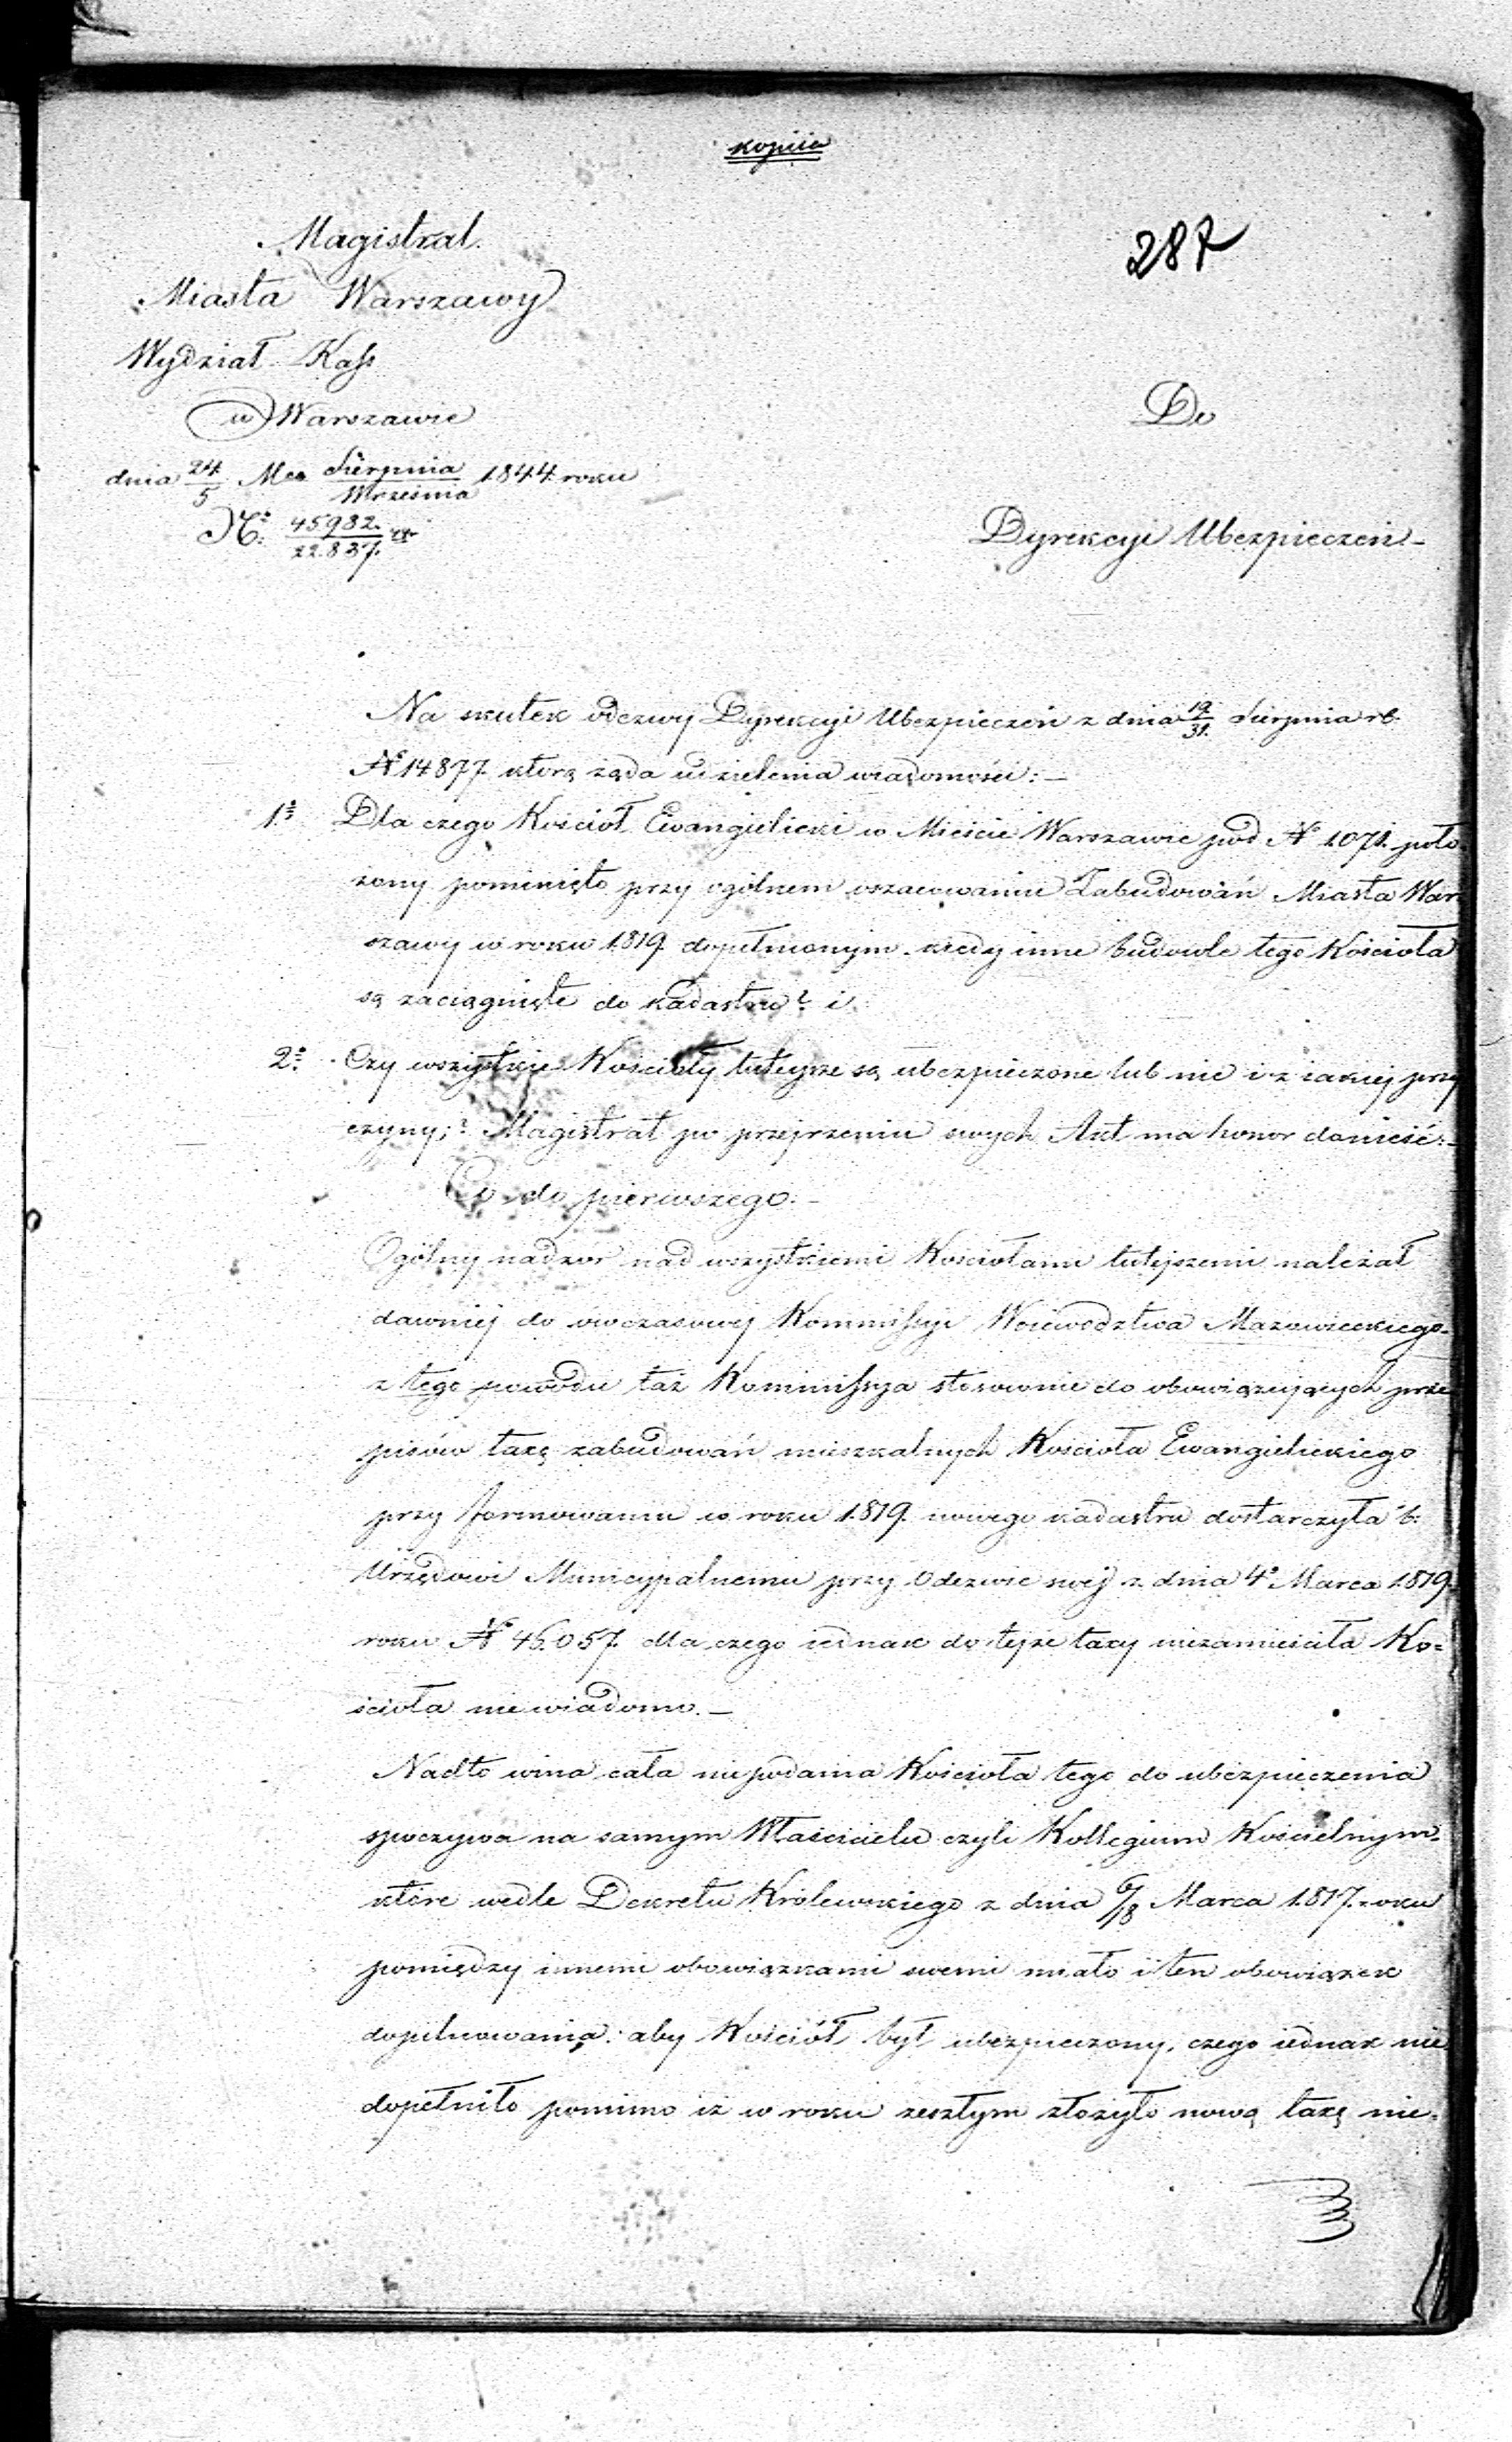 kopiia
287
Magistrat
Miasta Warszawy
Wydział Kass
w Warszawie
dnia 24/5 Mca Sierpnia/Września 1844 roku
No. 45982./22.837.
Do
Dyrekcyi Ubezpieczeń –
Na skutek odezwy Dyrekcyi Ubezpieczeń z dnia 19/31. Sierpnia rb.
No 14877 którą żąda udzielenia wiadomości: –
1o Dla czego Kościół Ewangielicki w Mieście Warszawie pod No 1071. poło
żony pominięto przy ogólnem oszacowaniu Zabudowań Miasta War
szawy w roku 1819 dopełnionym. kiedy inne budowle tego Kościoła
są zaciągnięte do kadastru? i
2o Czy wszystkie Kościoły tuteysze są ubezpieczone lub nie i z iakiej przy
czyny;? Magistrat po przejrzeniu swych Akt ma honor donieść: –
Co do pierwszego. –
Ogólny nadzor nad wszystkiemi Kościołami tutejszemi należał
dawniej do owczasowej Kommissyi Woiewodztwa Mazowieckiego.
z tego powodu taż Kommissya stosownie do obowiązujących prze
pisów taxę zabudowań mieszkalnych Kościoła Ewangielickiego
przy formowaniu w roku 1819. nowego kadastru dostarczyła b:
Urzędowi Municypalnemu przy Odezwie swej z dnia 4o Marca 1819
roku No 46.057. dla czego iednak do tejże taxy niezamieściła Ko=
ścioła niewiadomo. –
Nadto wina cała niepodania Kościoła tego do ubezpieczenia
spoczywa na samym Właścicielu czyli Kollegium Kościelnym.
które wedle Dekretu Królewskiego z dnia 6/18 Marca 1817. roku
pomiędzy innemi obowiązkami swemi miało i ten obowiązek
dopilnowania: aby Kościół był ubezpieczony, czego iednak nie
dopełniło pomimo iż w roku zeszłym złożyło nową taxę nie=